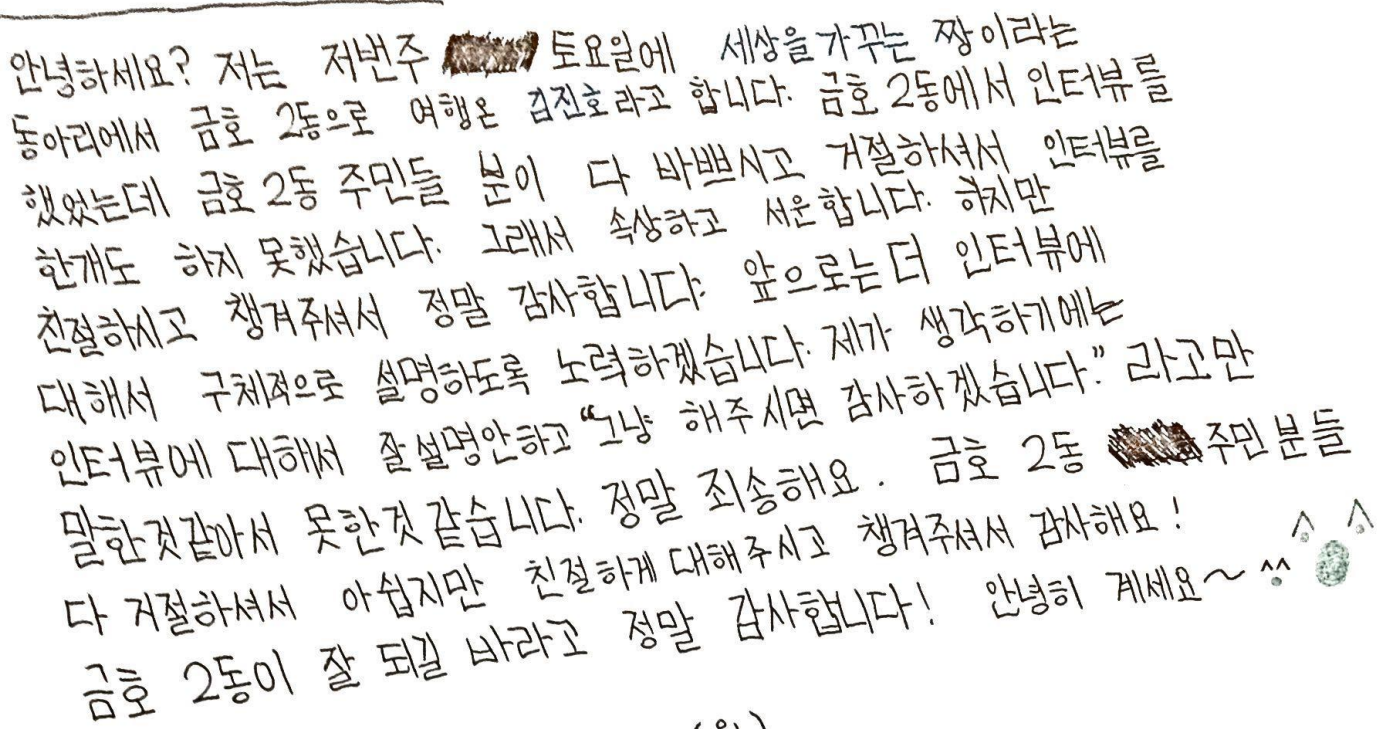 안녕하세요? 저는 저번주 토요일에 세상을가꾸는 짱이라는
동아리에서 금호 2동으로 여행온 김진호라고 합니다. 금호2동에서 인터뷰를
했었는데 금호2동 주민들 분이 다 바쁘시고 거절하셔서 인터뷰를
한개도 하지 못했습니다. 그래서 속상하고 서운합니다. 하지만
친절하시고 챙겨주셔서 정말 감사합니다. 앞으로는 더 인터뷰에
대해서 구체적으로 설명하도록 노력하겠습니다. 제가 생각하기에는
인터뷰에 대해서 잘설명안하고 “그냥 해주시면 감사하겠습니다.” 라고만
말한것같아서 못한것 같습니다. 정말 죄송해요. 금호 2동 주민분들
다 거절하셔서 아쉽지만 친절하게 대해주시고 챙겨주셔서 감사해요!
금호 2동이 잘 되길 바라고 정말 감사합니다! 안녕히 계세요~ ^^